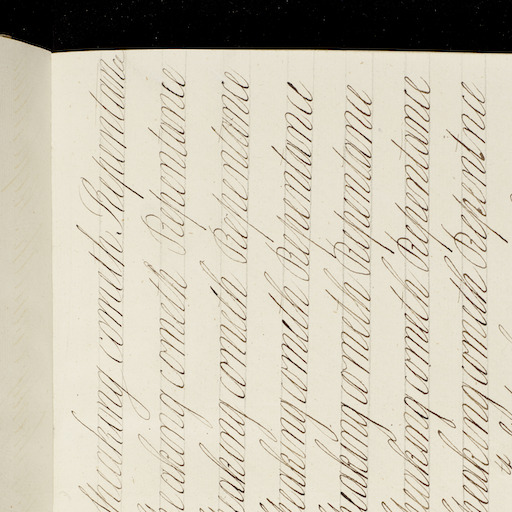 speaking cometh Repentanc
peaking cometh Repentance
peaking cometh Repentance
Speaking cometh Repentance
peaking cometh Repentance
Speaking cometh Repentance
Speaking cometh Repentnce